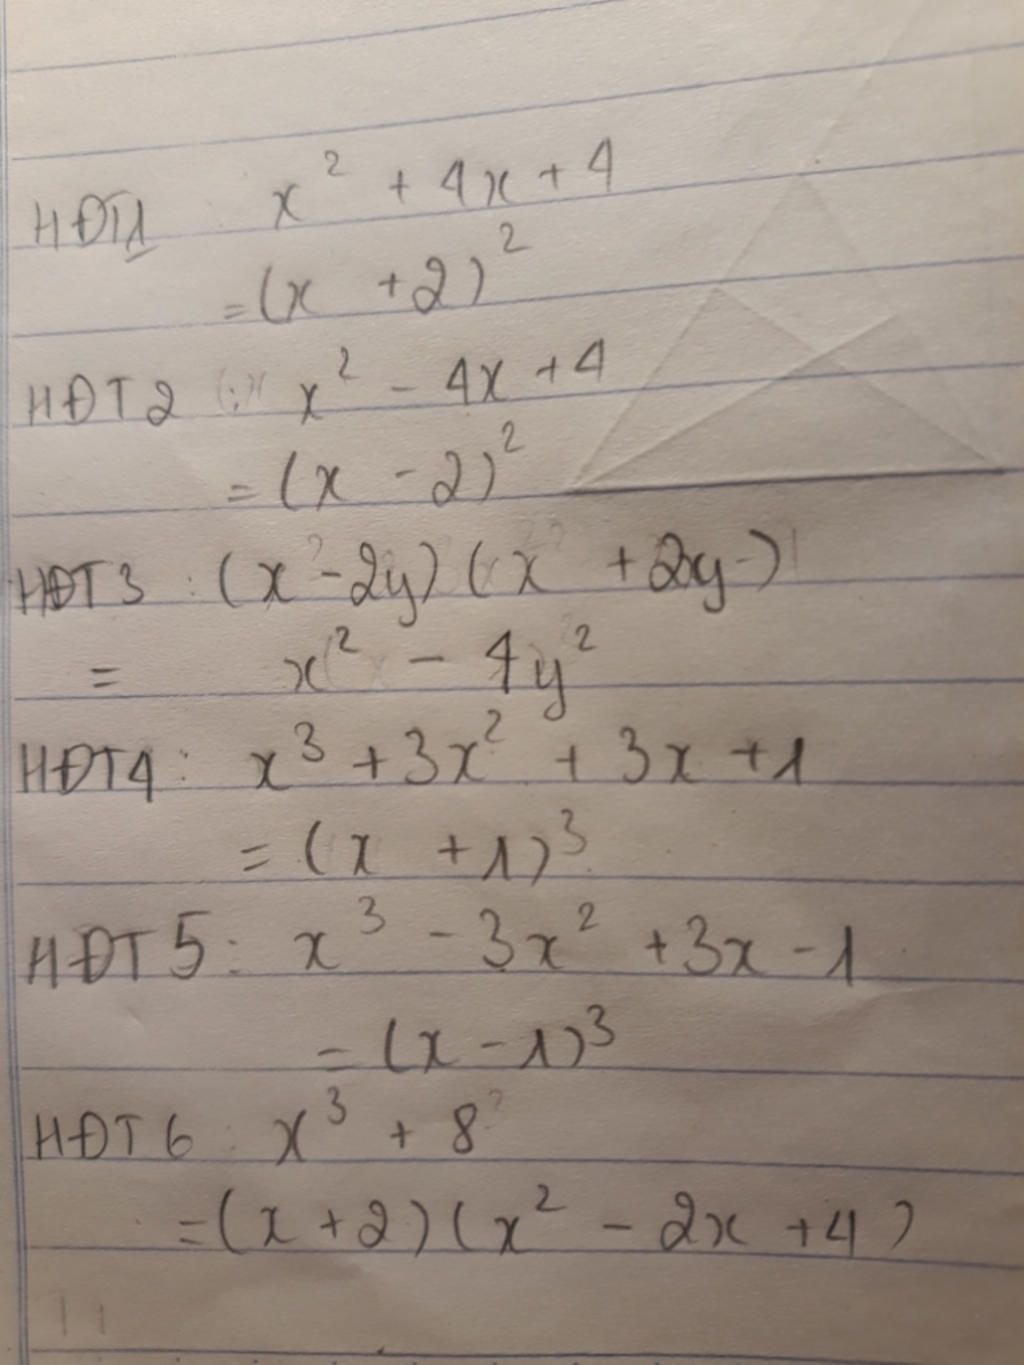 HĐT1 x² + 4x + 4
= (x + 2)²
HĐT 2 x² - 4x + 4
= (x - 2)²
HĐT 3 : (x - 2y) (x + 2y)
= x² - 4y²
HĐT4 : x³ + 3x² + 3x + 1
= (x + 1)³
HĐT 5 : x³ - 3x² + 3x - 1
= (x - 1)³
HĐT 6 : x³ + 8
= (x + 2) (x² - 2x + 4)